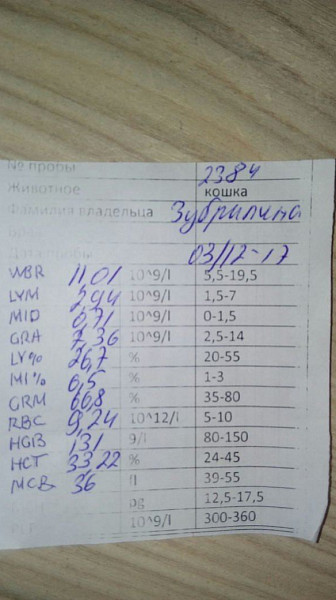 № пробы 2384
Животное кошка
Фамилия владельца Зубрилина
Дата пробы 03/12-17
WBR 11,01 10^9/l 5,5-19,5
LYM 2,94 10^9/l 1,5-7
MID 0,71 10^9/l 0-1,5
GRA 7,36 10^9/l 2,5-14
LY% 26,7 % 20-55
MI% 6,5 % 1-3
GRM 66,8 % 35-80
RBC 9,24 10^12/l 5-10
HGB 131 g/l 80-150
HCT 33,22 % 24-45
MCB 36 fl 39-55
pg 12,5-17,5
10^9/l 300-360